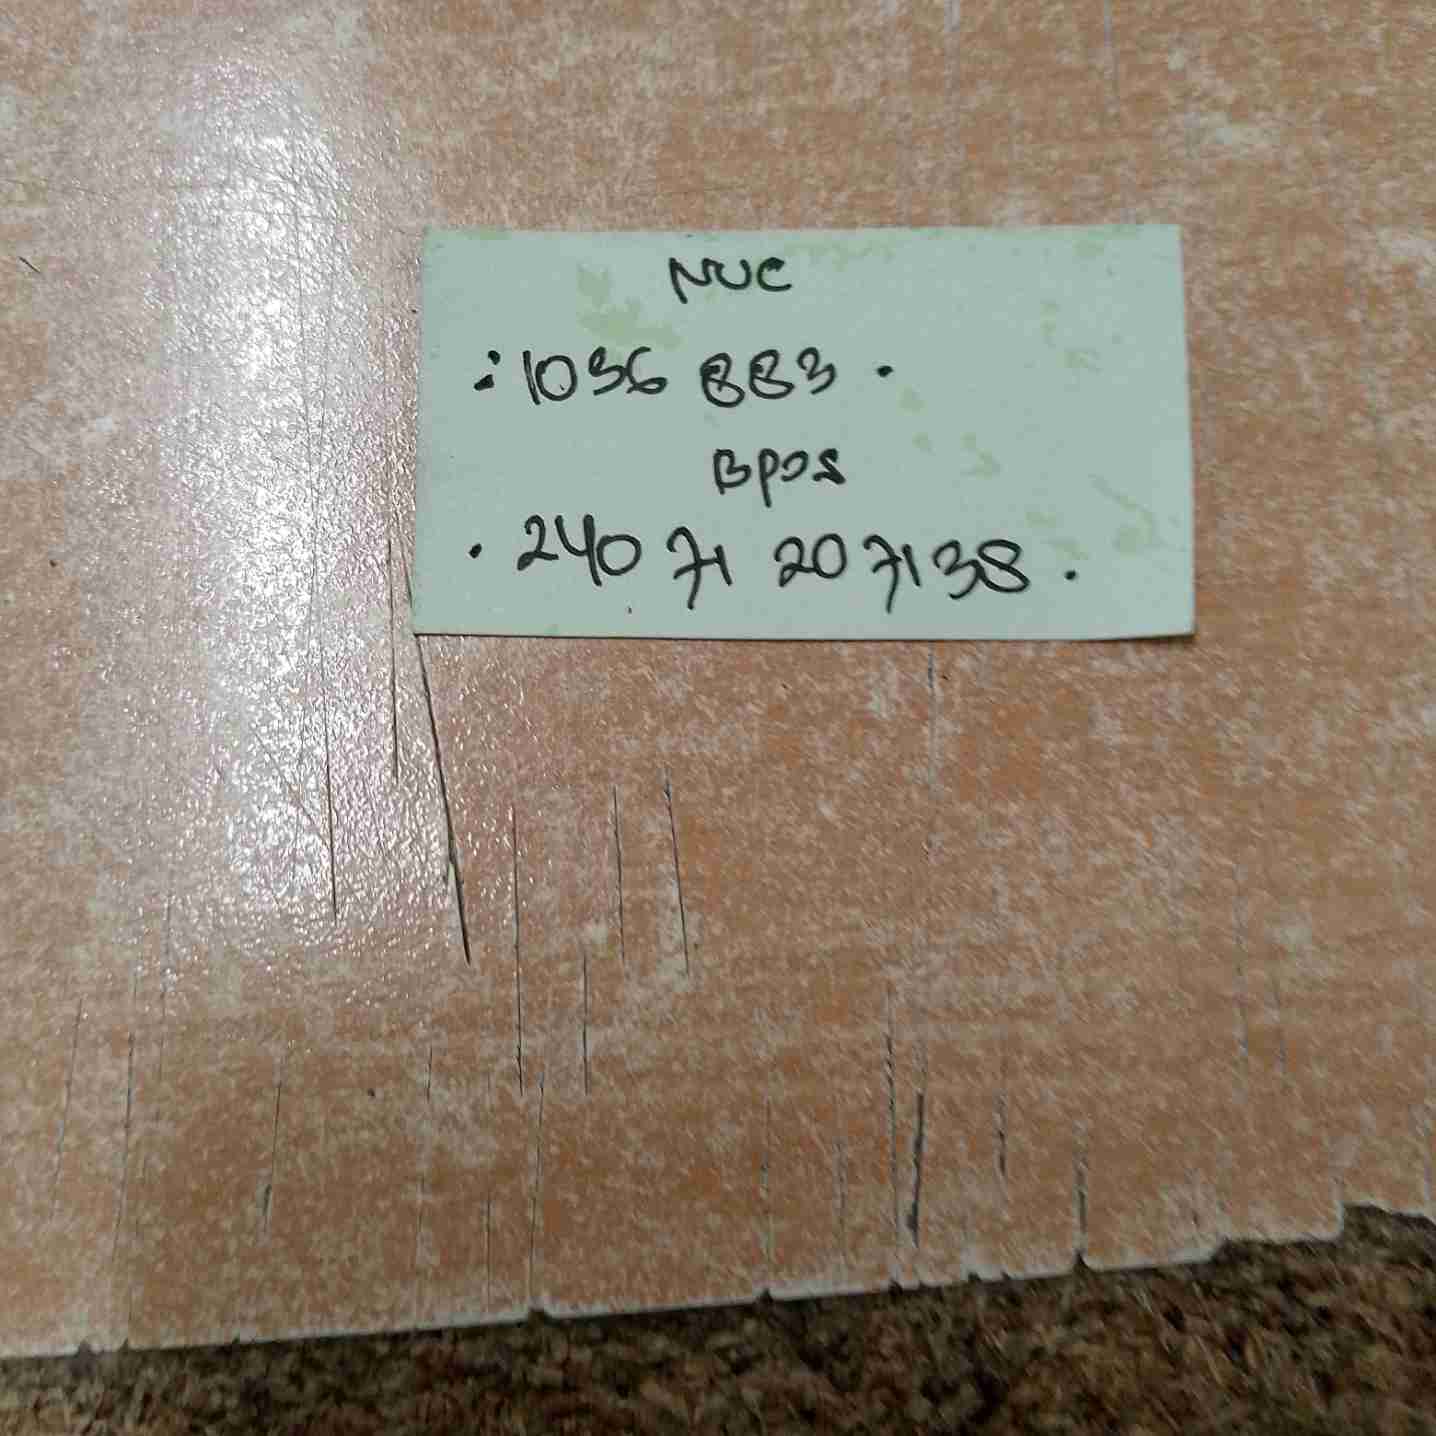 NUC
: 1036 883 .
Bpos
. 24071 207138 .